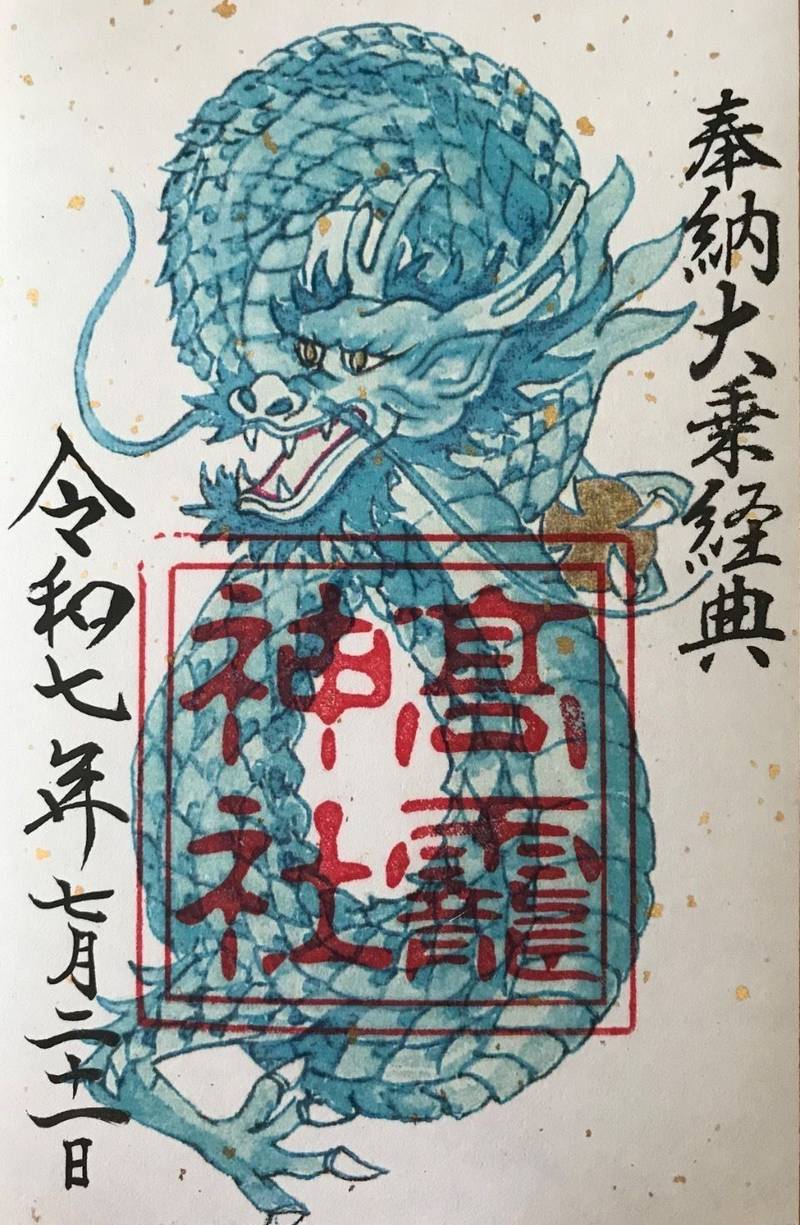 奉納大乗経典
髙靇
神社
令和七年七月二十一日